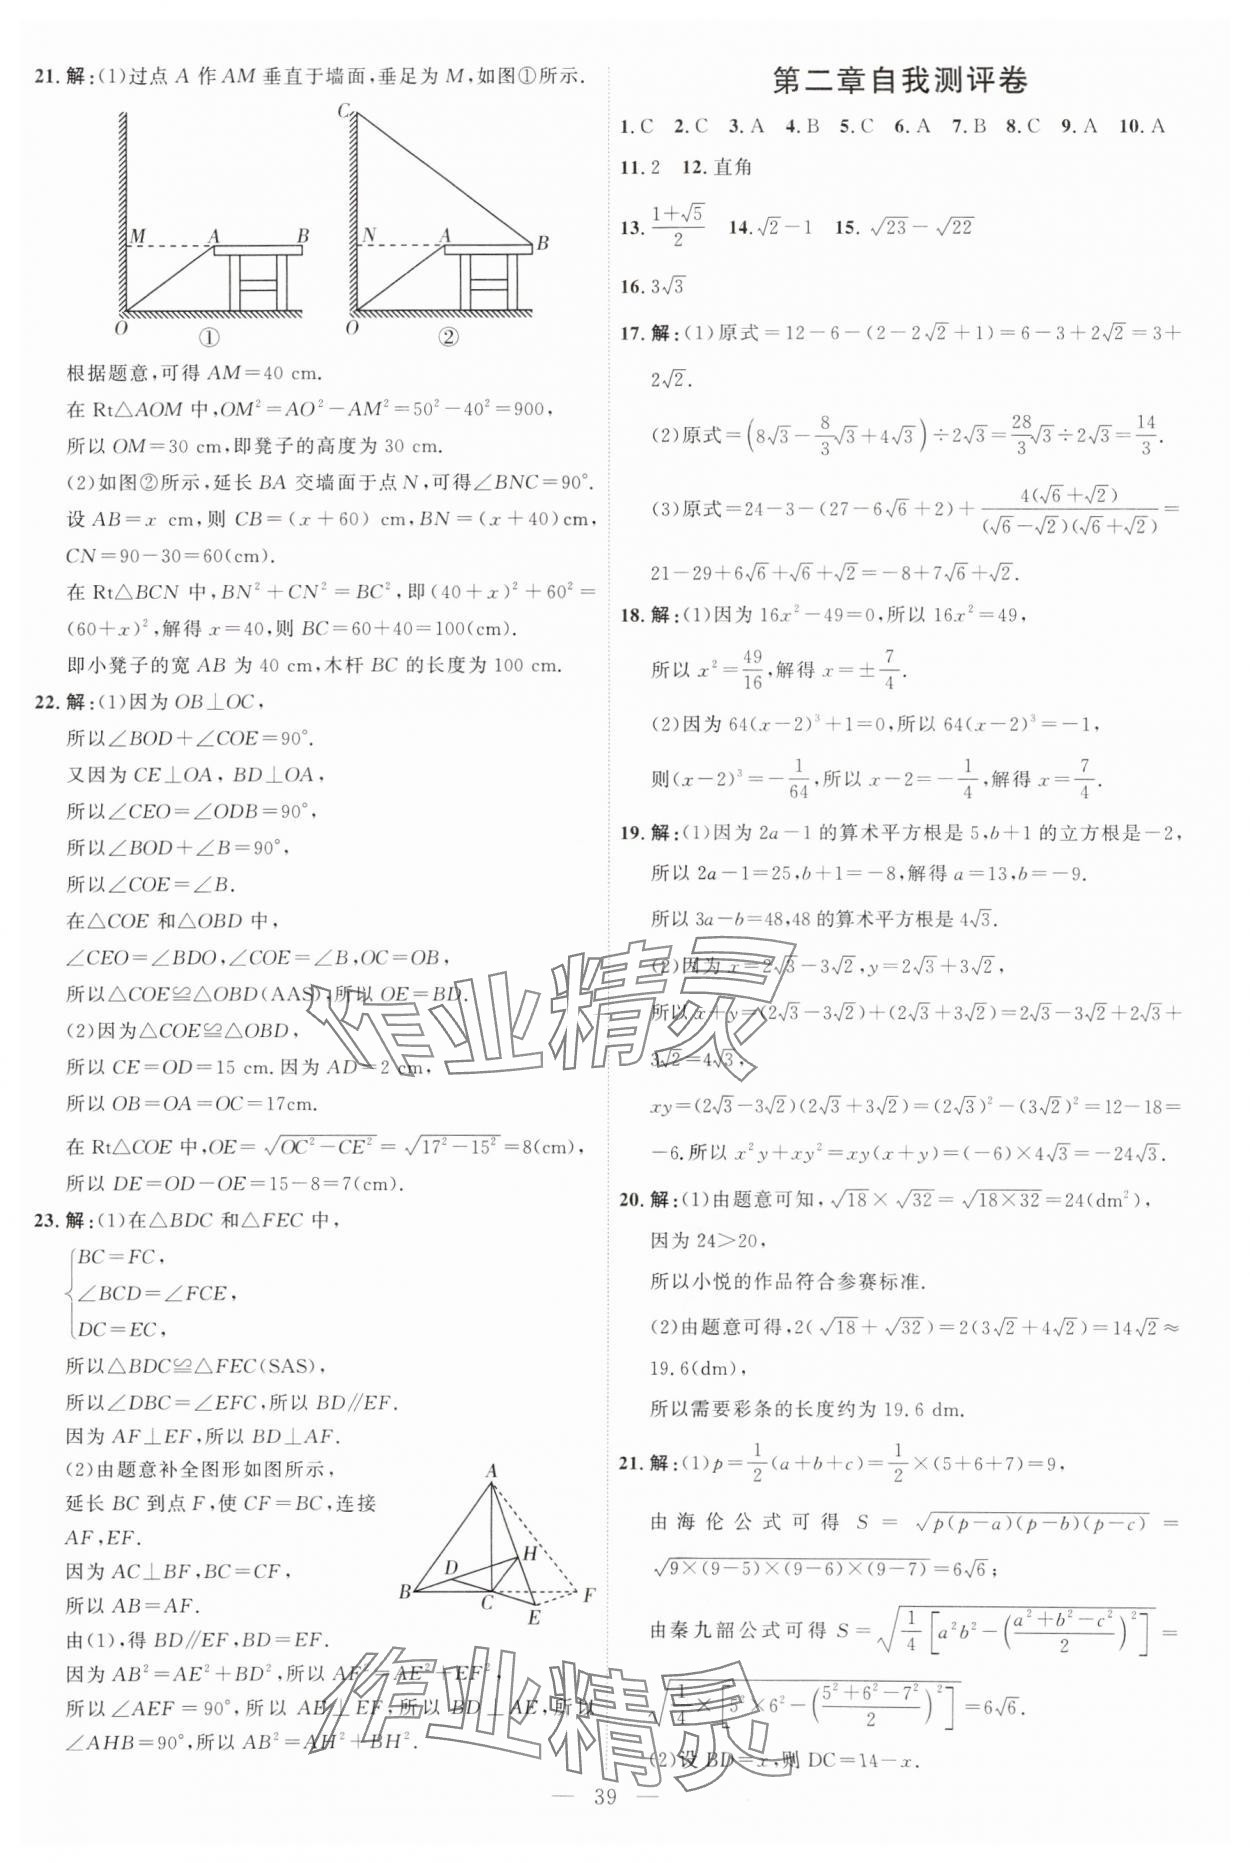 21. 解:(1)过点 A 作 AM 垂直于墙面,垂足为 M,如图①所示.
M A B O ①
C N A B O ②
根据题意,可得 AM=40 cm.
在 Rt△AOM 中,OM²=AO²−AM²=50²−40²=900,
所以 OM=30 cm,即凳子的高度为 30 cm.
(2)如图②所示,延长 BA 交墙面于点 N,可得∠BNC=90°.
设 AB=x cm,则 CB=(x+60) cm,BN=(x+40)cm,
CN=90−30=60(cm).
在 Rt△BCN 中,BN²+CN²=BC²,即(40+x)²+60²=
(60+x)²,解得 x=40,则 BC=60+40=100(cm).
即小凳子的宽 AB 为 40 cm,木杆 BC 的长度为 100 cm.
22. 解:(1)因为 OB⊥OC,
所以∠BOD+∠COE=90°.
又因为 CE⊥OA, BD⊥OA,
所以∠CEO=∠ODB=90°,
所以∠BOD+∠B=90°,
所以∠COE=∠B.
在△COE 和△OBD 中,
∠CEO=∠BDO,∠COE=∠B,OC=OB,
所以△COE≌△OBD(AAS),所以 OE=BD.
(2)因为△COE≌△OBD,
所以 CE=OD=15 cm.因为 AD=2 cm,
所以 OB=OA=OC=17cm.
在 Rt△COE 中,OE=√(OC²−CE²)=√(17²−15²)=8(cm),
所以 DE=OD−OE=15−8=7(cm).
23. 解:(1)在△BDC 和△FEC 中,
BC=FC,
∠BCD=∠FCE,
DC=EC,
所以△BDC≌△FEC(SAS),
所以∠DBC=∠EFC,所以 BD∥EF.
因为 AF⊥EF,所以 BD⊥AF.
(2)由题意补全图形如图所示,
延长 BC 到点 F,使 CF=BC,连接
AF,EF.
因为 AC⊥BF,BC=CF,
所以 AB=AF.
由(1),得 BD∥EF,BD=EF.
因为 AB²=AE²+BD²,所以 AF²=AE²+EF²,
所以∠AEF=90°,所以 AE⊥EF,所以 BD⊥AE,所以
∠AHB=90°,所以 AB²=AH²+BH².
A H D B C E F
第二章自我测评卷
1. C 2. C 3. A 4. B 5. C 6. A 7. B 8. C 9. A 10. A
11. 2 12. 直角
13. (1+√5)/2 14. √2−1 15. √23−√22
16. 3√3
17. 解:(1)原式=12−6−(2−2√2+1)=6−3+2√2=3+
2√2.
(2)原式=(8√3−8/3√3+4√3)÷2√3=28/3√3÷2√3=14/3.
(3)原式=24−3−(27−6√6+2)+4(√6+√2)/((√6−√2)(√6+√2))=
21−29+6√6+√6+√2=−8+7√6+√2.
18. 解:(1)因为 16x²−49=0,所以 16x²=49,
所以 x²=49/16,解得 x=±7/4.
(2)因为 64(x−2)³+1=0,所以 64(x−2)³=−1,
则(x−2)³=−1/64,所以 x−2=−1/4,解得 x=7/4.
19. 解:(1)因为 2a−1 的算术平方根是 5,b+1 的立方根是−2,
所以 2a−1=25,b+1=−8,解得 a=13,b=−9.
所以 3a−b=48,48 的算术平方根是 4√3.
(2)因为 x=2√3−3√2,y=2√3+3√2,
所以 x+y=(2√3−3√2)+(2√3+3√2)=2√3−3√2+2√3+
3√2=4√3,
xy=(2√3−3√2)(2√3+3√2)=(2√3)²−(3√2)²=12−18=
−6.所以 x²y+xy²=xy(x+y)=(−6)×4√3=−24√3.
20. 解:(1)由题意可知,√18×√32=√(18×32)=24(dm²),
因为 24>20,
所以小悦的作品符合参赛标准.
(2)由题意可得,2(√18+√32)=2(3√2+4√2)=14√2≈
19.6(dm),
所以需要彩条的长度约为 19.6 dm.
21. 解:(1)p=1/2(a+b+c)=1/2×(5+6+7)=9,
由海伦公式可得 S=√(p(p−a)(p−b)(p−c))=
√(9×(9−5)×(9−6)×(9−7))=6√6;
由秦九韶公式可得 S=√(1/4[a²b²−((a²+b²−c²)/2)²])=
√(1/4×[5²×6²−((5²+6²−7²)/2)²])=6√6.
(2)设 BD=x,则 DC=14−x.
— 39 —
作业精灵
作业精灵